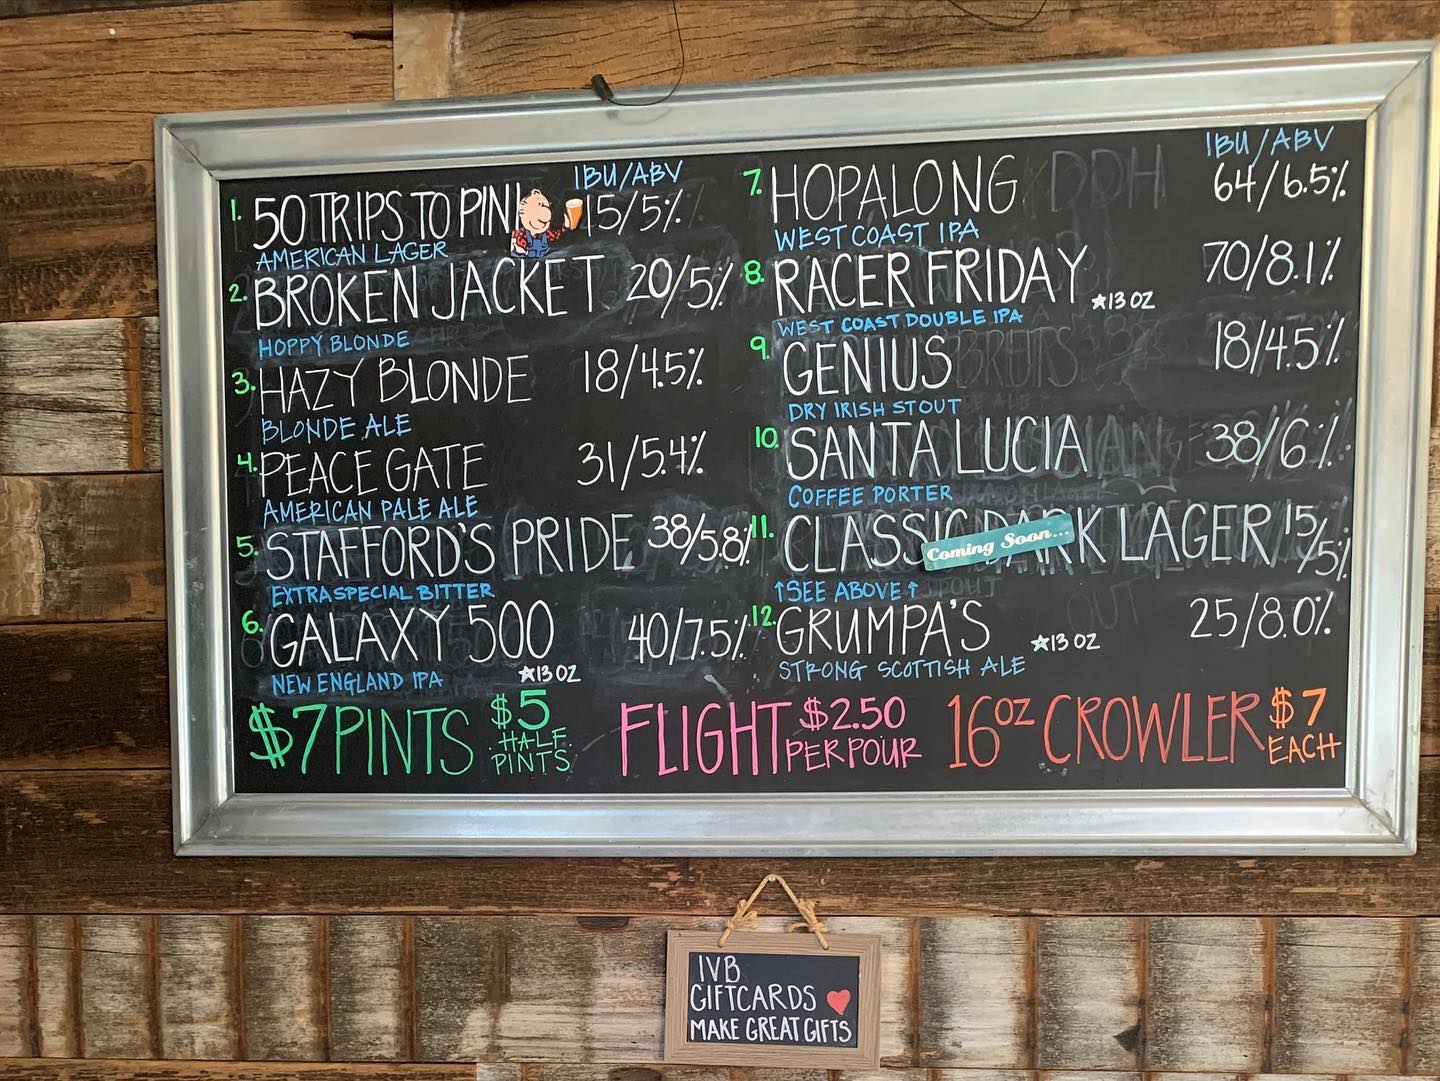 IBU/ABV
1. 50 TRIPS TO PINI 15/5%
AMERICAN LAGER
2. BROKEN JACKET 20/5%
HOPPY BLONDE
3. HAZY BLONDE 18/4.5%
BLONDE ALE
4. PEACE GATE 31/5.4%
AMERICAN PALE ALE
5. STAFFORD'S PRIDE 38/5.8%
EXTRA SPECIAL BITTER
6. GALAXY 500 40/7.5%
NEW ENGLAND IPA ★13 OZ
IBU/ABV
7. HOPALONG DDH 64/6.5%
WEST COAST IPA
8. RACER FRIDAY ★13 OZ 70/8.1%
WEST COAST DOUBLE IPA
9. GENIUS 18/4.5%
DRY IRISH STOUT
10. SANTA LUCIA 38/6%
COFFEE PORTER
11. CLASSIC DARK LAGER 15/5%
Coming Soon...
↑SEE ABOVE↑
12. GRUMPA'S ★13 OZ 25/8.0%
STRONG SCOTTISH ALE
$7 PINTS $5 HALF PINTS
FLIGHT $2.50 PER POUR
16oz CROWLER $7 EACH
IVB
GIFTCARDS ♥
MAKE GREAT GIFTS